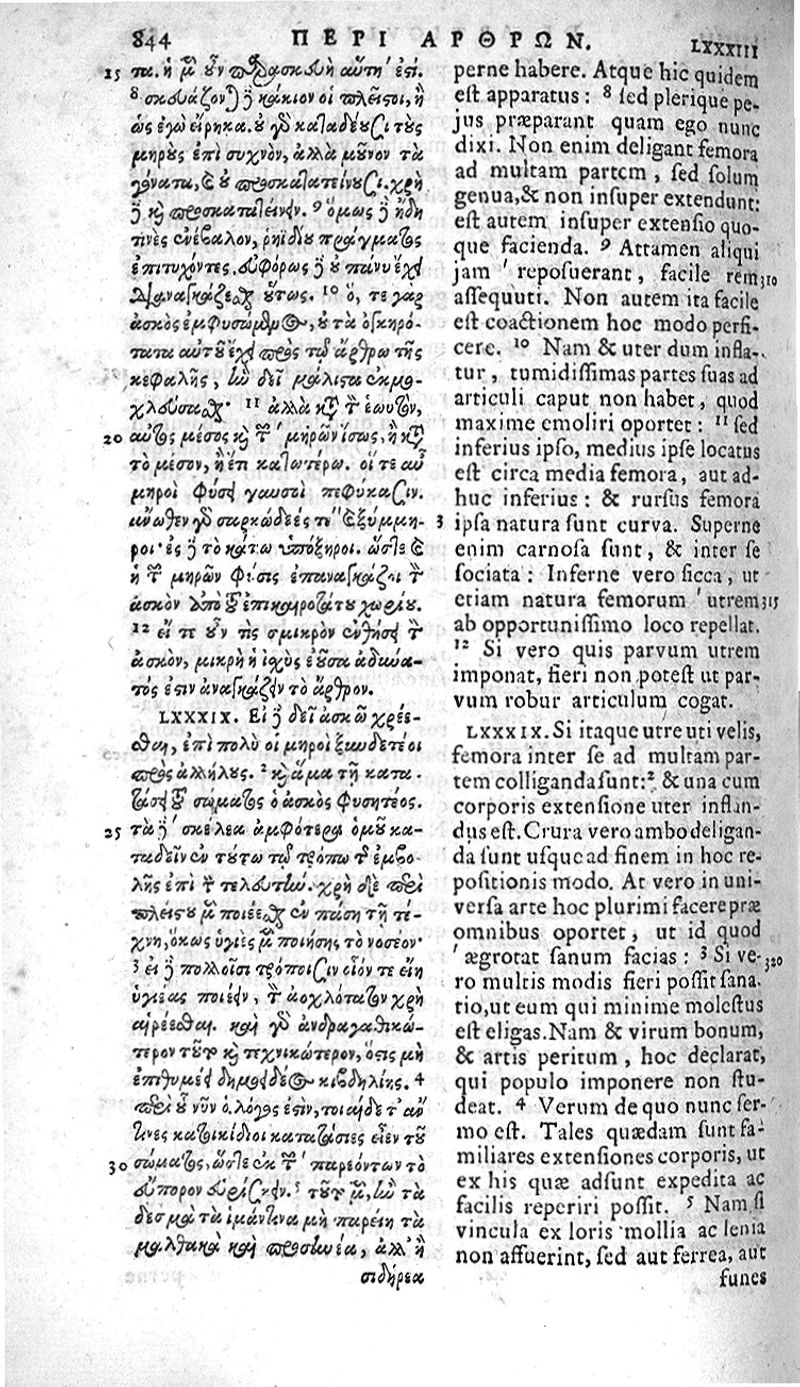 844 ΠΕΡΙ ΑΡΘΡΩΝ. LXXXIII
15 τα. ἡ μὲν οὖν παρασκευὴ αὕτη ἐστί.
8 σκευάζονται δὲ κάκιον οἱ πλεῖστοι, ἢ
ὡς ἐγὼ εἴρηκα. οὐ γὰρ καταδέουσι τοὺς
μηροὺς ἐπὶ συχνὸν, ἀλλὰ μοῦνον τὰ
γόνατα, καὶ οὐ προσκατατείνουσι. χρὴ
δὲ καὶ προσκατατείνειν. 9 ὅμως δὲ ἤδη
τινὲς ἐνέβαλον, ῥηϊδίου πράγματος
ἐπιτυχόντες. εὐφόρως δὲ οὐ πάνυ ἔχει
διαναγκάζεσθαι οὕτως. 10 ὅ, τε γὰρ
ἀσκὸς ἐμφυσώμενος, οὐ τὰ ὀγκηρό-
τατα αὐτοῦ ἔχει πρὸς τῷ ἄρθρῳ τῆς
κεφαλῆς, ἣν δεῖ μάλιστα ἐκμο-
χλεύσασθαι· 11 ἀλλὰ κατὰ τὸν ἑωυτὸν,
20 αὐτὸς μέσος καὶ τῶν μηρῶν ἴσως, ἢ κατὰ
τὸ μέσον, ἢ ἔτι κατωτέρω. οἵ τε αὖ
μηροὶ φύσει γαυσοὶ πεφύκασιν.
ἄνωθεν γὰρ σαρκώδεές τε καὶ ξύμμη-
ροι· ἐς δὲ τὸ κάτω ὑπόξηροι. ὥστε καὶ
ἡ τῶν μηρῶν φύσις ἐπαναγκάζει τὸν
ἀσκὸν ἀπὸ τοῦ ἐπικαιροτάτου χωρίου.
12 εἴ τε οὖν τις σμικρὸν ἐνθήσει τὸν
ἀσκὸν, μικρὴ ἡ ἰχὺς ἐοῦσα ἀδύνα-
τός ἐστιν ἀναγκάζειν τὸ ἄρθρον.
LXXXIX. Εἰ δὲ δεῖ ἀσκῷ χρέε-
σθαι, ἐπὶ πολὺ οἱ μηροὶ ξυνδετέοι
πρὸς ἀλλήλους. 2 καὶ ἅμα τῇ κατα-
τάσει τοῦ σώματος ὁ ἀσκὸς φυσητέος.
25 τὰ δὲ σκέλεα ἀμφότερα ὁμοῦ κα-
ταδεῖν ἐν τούτῳ τῷ τρόπῳ τῆς ἐμβο-
λῆς ἐπὶ τὴν τελευτήν. χρὴ δὲ περὶ
πλείστου μὲν ποιέεσθαι ἐν πάσῃ τῇ τέ-
χνῃ, ὅκως ὑγιὲς μὲν ποιήσῃς τὸ νοσέον·
3 εἰ δὲ πολλοῖσι τρόποισιν οἷόν τε εἴη
ὑγιέας ποιέειν, τὸν ἀοχλότατον χρὴ
αἱρέεσθαι. καὶ γὰρ ἀνδραγαθικώ-
τερον τοῦτο καὶ τεχνικώτερον, ὅστις μὴ
ἐπιθυμέει δημοειδέος κιβδηλίης. 4
περὶ οὗ νῦν ὁ λόγος ἐστὶν, τοιαίδε τ’ ἄν
τινες κατοικίδιοι κατατάσιες εἶεν τοῦ
30 σώματος, ὥστε ἐκ τῶν παρεόντων τὸ
εὔπορον εὑρίσκειν. 5 τοῦτο μὲν, ἢν τὰ
δεσμὰ τὰ ἱμάντινα μὴ παρείη τὰ
μαλθακὰ καὶ προσηνέα, ἀλλ’ ἢ
σιδήρεα
perne habere. Atque hic quidem
est apparatus: 8 sed plerique pe-
jus præparant quam ego nunc
dixi. Non enim deligant femora
ad multam partem, sed solum
genua, & non insuper extendunt:
est autem insuper extensio quo-
que facienda. 9 Attamen aliqui
jam ' reposuerant, facile rem 310
assequuti. Non autem ita facile
est coactionem hoc modo perfi-
cere. 10 Nam & uter dum infla-
tur, tumidissimas partes suas ad
articuli caput non habet, quod
maxime emoliri oportet: 11 sed
inferius ipso, medius ipse locatus
est circa media femora, aut ad-
huc inferius: & rursus femora
3 ipsa natura sunt curva. Superne
enim carnosa sunt, & inter se
sociata: Inferne vero sicca, ut
etiam natura femorum ' utrem 315
ab opportunissimo loco repellat.
12 Si vero quis parvum utrem
imponat, fieri non potest ut par-
vum robur articulum cogat.
LXXXIX. Si itaque utre uti velis,
femora inter se ad multam par-
tem colliganda sunt: 2 & una cum
corporis extensione uter inflan-
dus est. Crura vero ambo deligan-
da sunt usque ad finem in hoc re-
positionis modo. At vero in uni-
versa arte hoc plurimi facere præ
omnibus oportet, ut id quod
' ægrotat sanum facias: 3 Si ve- 320
ro multis modis fieri possit sana-
tio, ut eum qui minime molestus
est eligas. Nam & virum bonum,
& artis peritum, hoc declarat,
qui populo imponere non stu-
deat. 4 Verum de quo nunc ser-
mo est. Tales quædam sunt fa-
miliares extensiones corporis, ut
ex his quæ adsunt expedita ac
facilis reperiri possit. 5 Nam si
vincula ex loris mollia ac lenia
non affuerint, sed aut ferrea, aut
funes